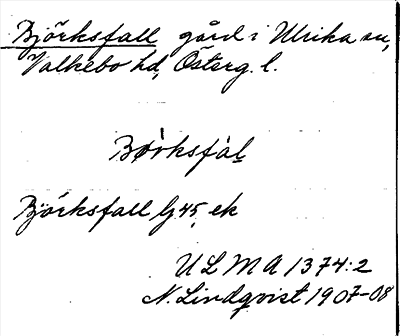 Björksfall gård i Ulrika sn,
Valkebo hd, Österg. l.
Björksfal
Björksfall Gj 45, ek
ULMA 1374:2
N. Lindqvist 1907-08